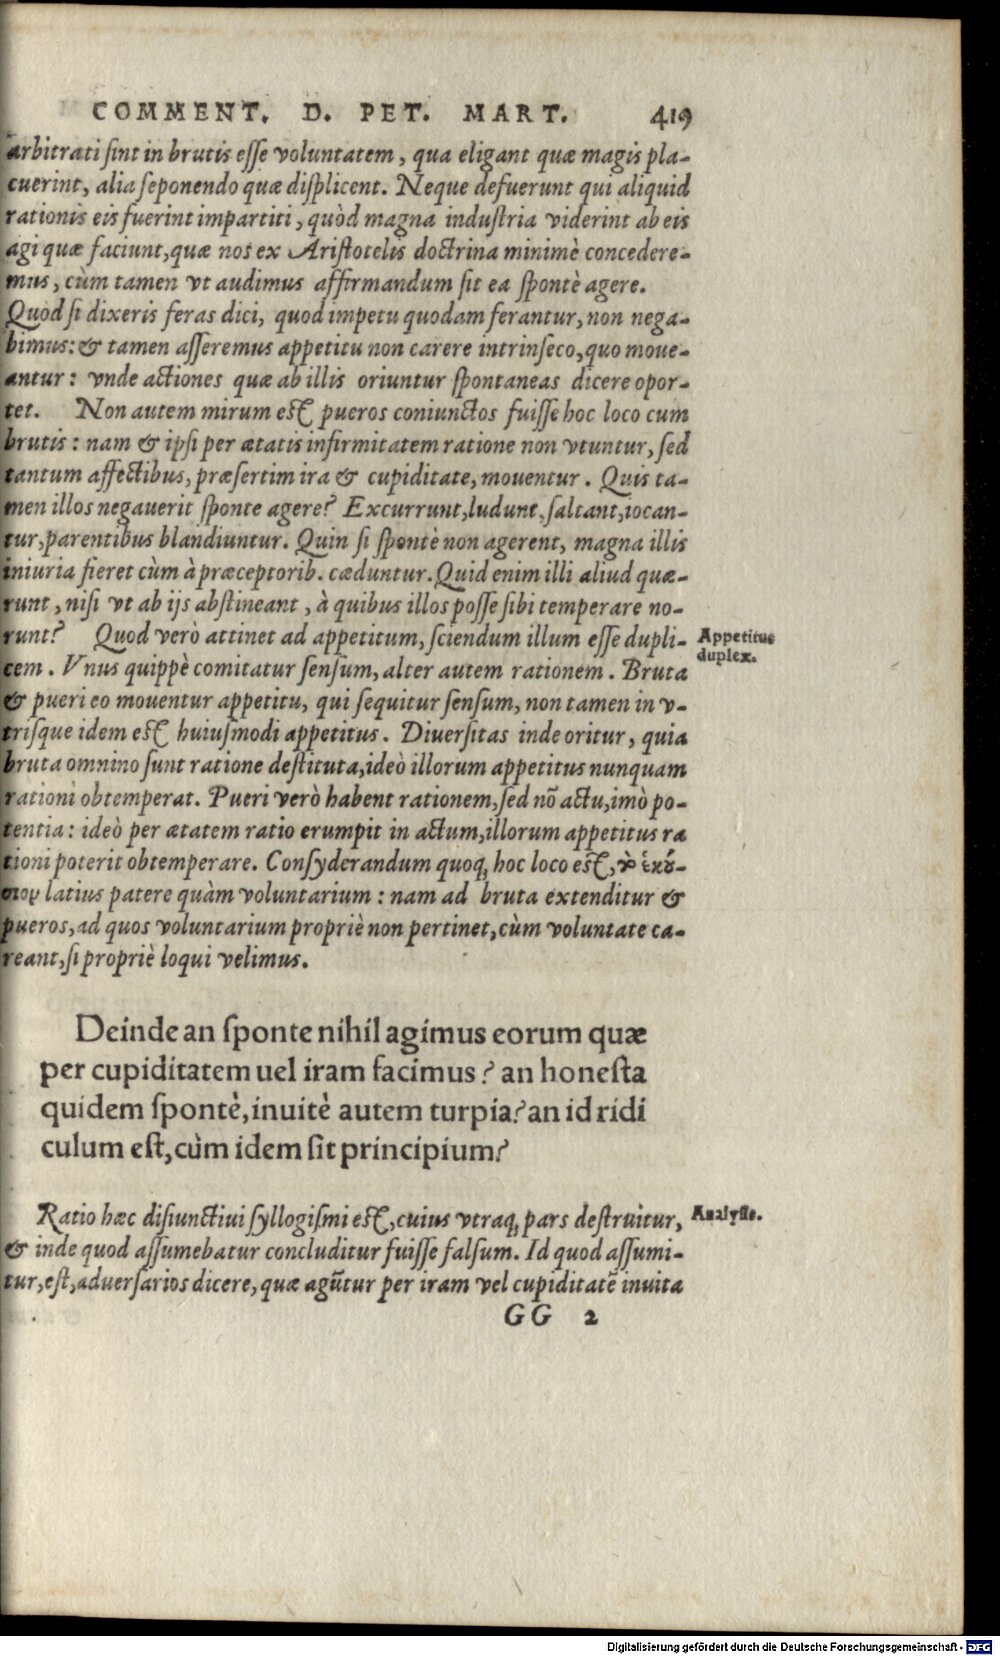 COMMENT. D. PET. MART. 419
arbitrati ſint in brutis eſſe voluntatem, qua eligant quæ magis pla-
cuerint, alia ſeponendo quæ diſplicent. Neque defuerunt qui aliquid
rationis eis fuerint impartiti, quòd magna induſtria viderint ab eis
agi quæ faciunt, quæ nos ex Ariſtotelis doctrina minimè concedere-
mus, cùm tamen vt audimus affirmandum ſit ea ſpontè agere.
Quod ſi dixeris feras dici, quod impetu quodam ferantur, non nega-
bimus: & tamen aſſeremus appetitu non carere intrinſeco, quo moue-
antur: vnde actiones quæ ab illis oriuntur ſpontaneas dicere opor-
tet. Non autem mirum eſt pueros coniunctos fuiſſe hoc loco cum
brutis: nam & ipſi per ætatis infirmitatem ratione non vtuntur, ſed
tantum affectibus, præſertim ira & cupiditate, mouentur. Quis ta-
men illos negauerit ſponte agere? Excurrunt, ludunt, ſaltant, iocan-
tur, parentibus blandiuntur. Quin ſi ſpontè non agerent, magna illis
iniuria fieret cùm à præceptorib. cæduntur. Quid enim illi aliud quæ-
runt, niſi vt ab ijs abſtineant, à quibus illos poſſe ſibi temperare no-
runt? Quod verò attinet ad appetitum, ſciendum illum eſſe dupli-
Appetitus
duplex.
cem. Vnus quippè comitatur ſenſum, alter autem rationem. Bruta
& pueri eo mouentur appetitu, qui ſequitur ſenſum, non tamen in v-
triſque idem eſt huiuſmodi appetitus. Diuerſitas inde oritur, quia
bruta omnino ſunt ratione deſtituta, ideò illorum appetitus nunquam
rationi obtemperat. Pueri verò habent rationem, ſed nõ actu, imò po-
tentia: ideò per ætatem ratio erumpit in actum, illorum appetitus ra
tioni poterit obtemperare. Conſyderandum quoq; hoc loco eſt, τὸ ἑκού-
σιον latius patere quàm voluntarium: nam ad bruta extenditur &
pueros, ad quos voluntarium propriè non pertinet, cùm voluntate ca-
reant, ſi propriè loqui velimus.
Deinde an ſponte nihil agimus eorum quæ
per cupiditatem uel iram facimus? an honeſta
quidem ſpontè, inuitè autem turpia? an id ridi
culum eſt, cùm idem ſit principium?
Ratio hæc diſiunctiui ſyllogiſmi eſt, cuius vtraq; pars deſtruitur,
Analyſis.
& inde quod aſſumebatur concluditur fuiſſe falſum. Id quod aſſumi-
tur, eſt, aduerſarios dicere, quæ agũtur per iram vel cupiditatẽ inuita
GG 2
Digitalisierung gefördert durch die Deutsche Forschungsgemeinschaft - DFG